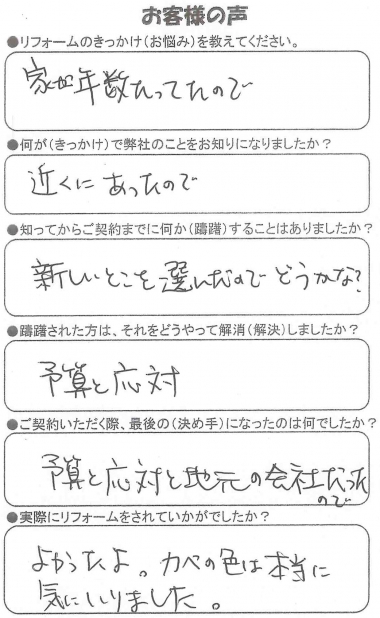 お客様の声
●リフォームのきっかけ(お悩み)を教えてください。
家が年数たってたので
●何が(きっかけ)で弊社のことをお知りになりましたか?
近くにあったので
●知ってからご契約までに何か(躊躇)することはありましたか?
新しいとこを選んだのでどうかな?
●躊躇された方は、それをどうやって解消(解決)しましたか?
予算と応対
●ご契約いただく際、最後の(決め手)になったのは何でしたか?
予算と応対と地元の会社だった
ので
●実際にリフォームをされていかがでしたか?
よかったよ。カベの色は本当に
気にいりました。